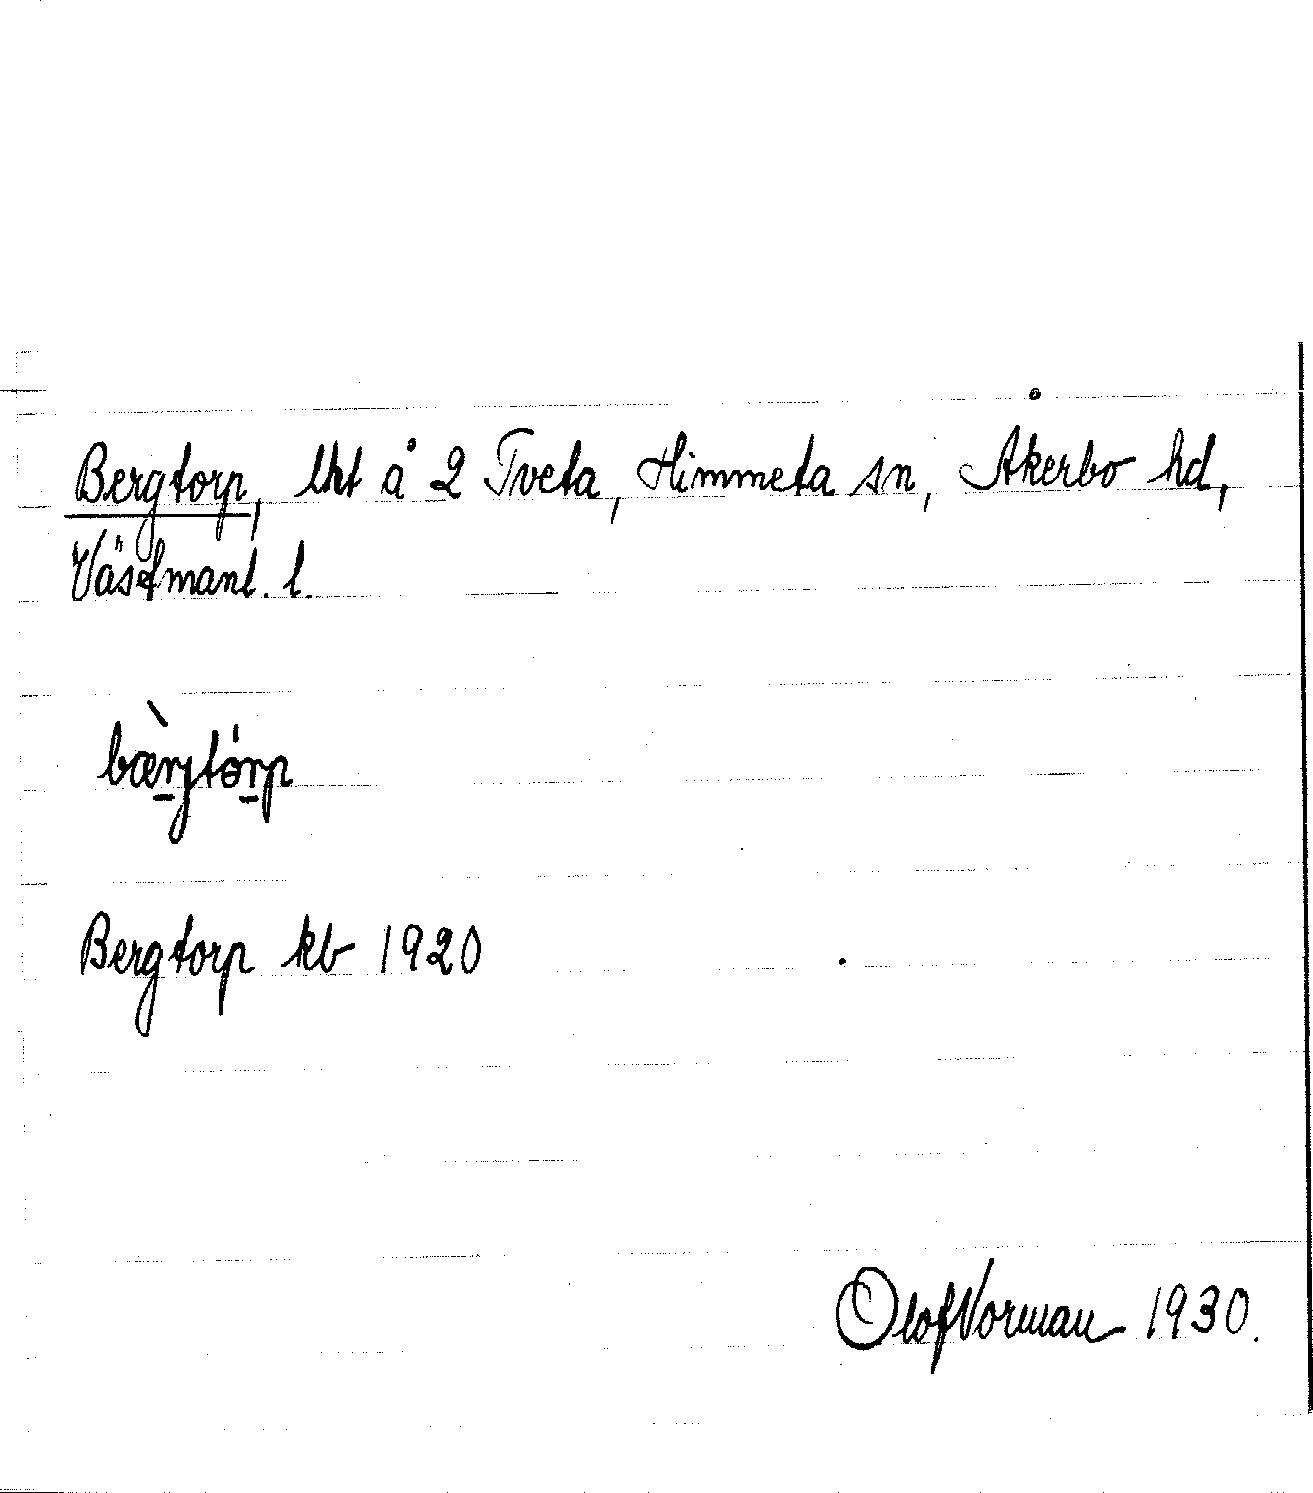 Bergtorp, lht å 2 Tveta, Himmeta sn, Åkerbo hd,
Västmanl. l.
bæ̀rjtórp
Bergtorp kb 1920
Olof Norman 1930.